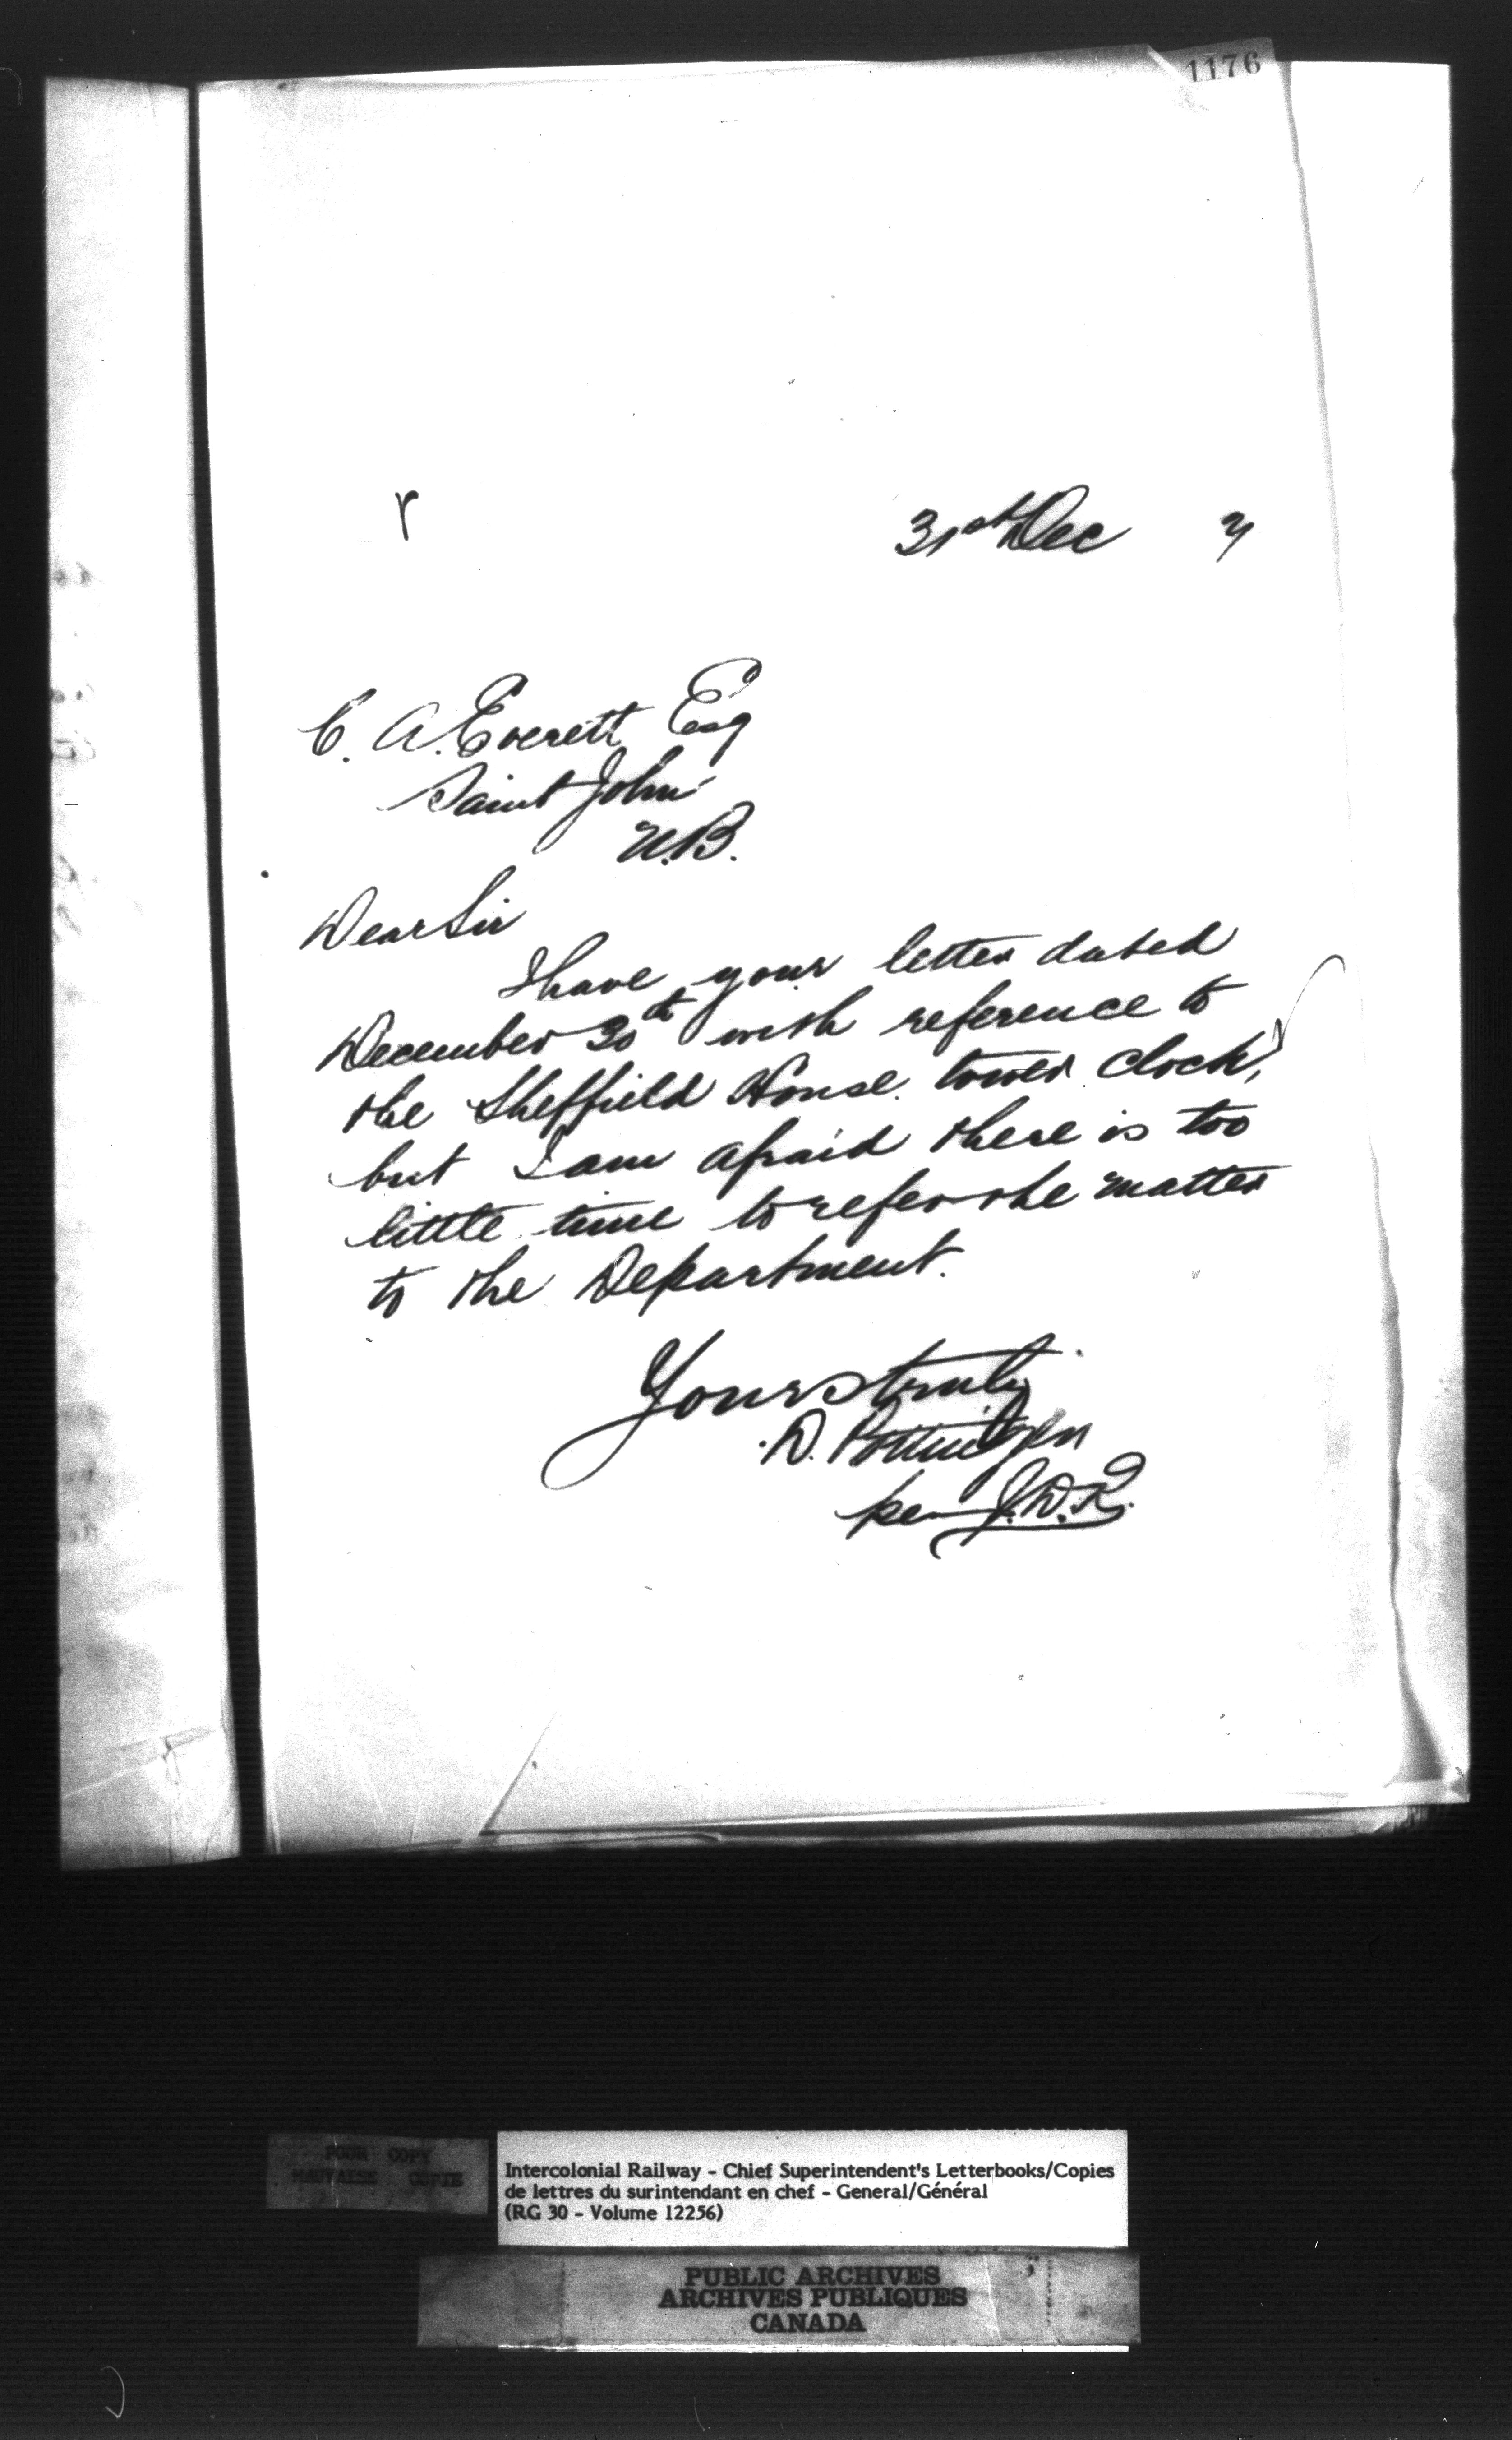 1176
r
31st Dec 7
C. A. Everett Esq
Saint John
N.B.
Dear Sir
I have your letter dated
December 30th with reference to
the Sheffield House tower clock,
but I am afraid there is too
little time to refer the matter
to the Department.
Yours truly
D. Pottinger
per J.D.K.
POOR COPY
MAUVAISE COPIE
Intercolonial Railway - Chief Superintendent's Letterbooks/Copies
de lettres du surintendant en chef - General/Général
(RG 30 - Volume 12256)
PUBLIC ARCHIVES
ARCHIVES PUBLIQUES
CANADA